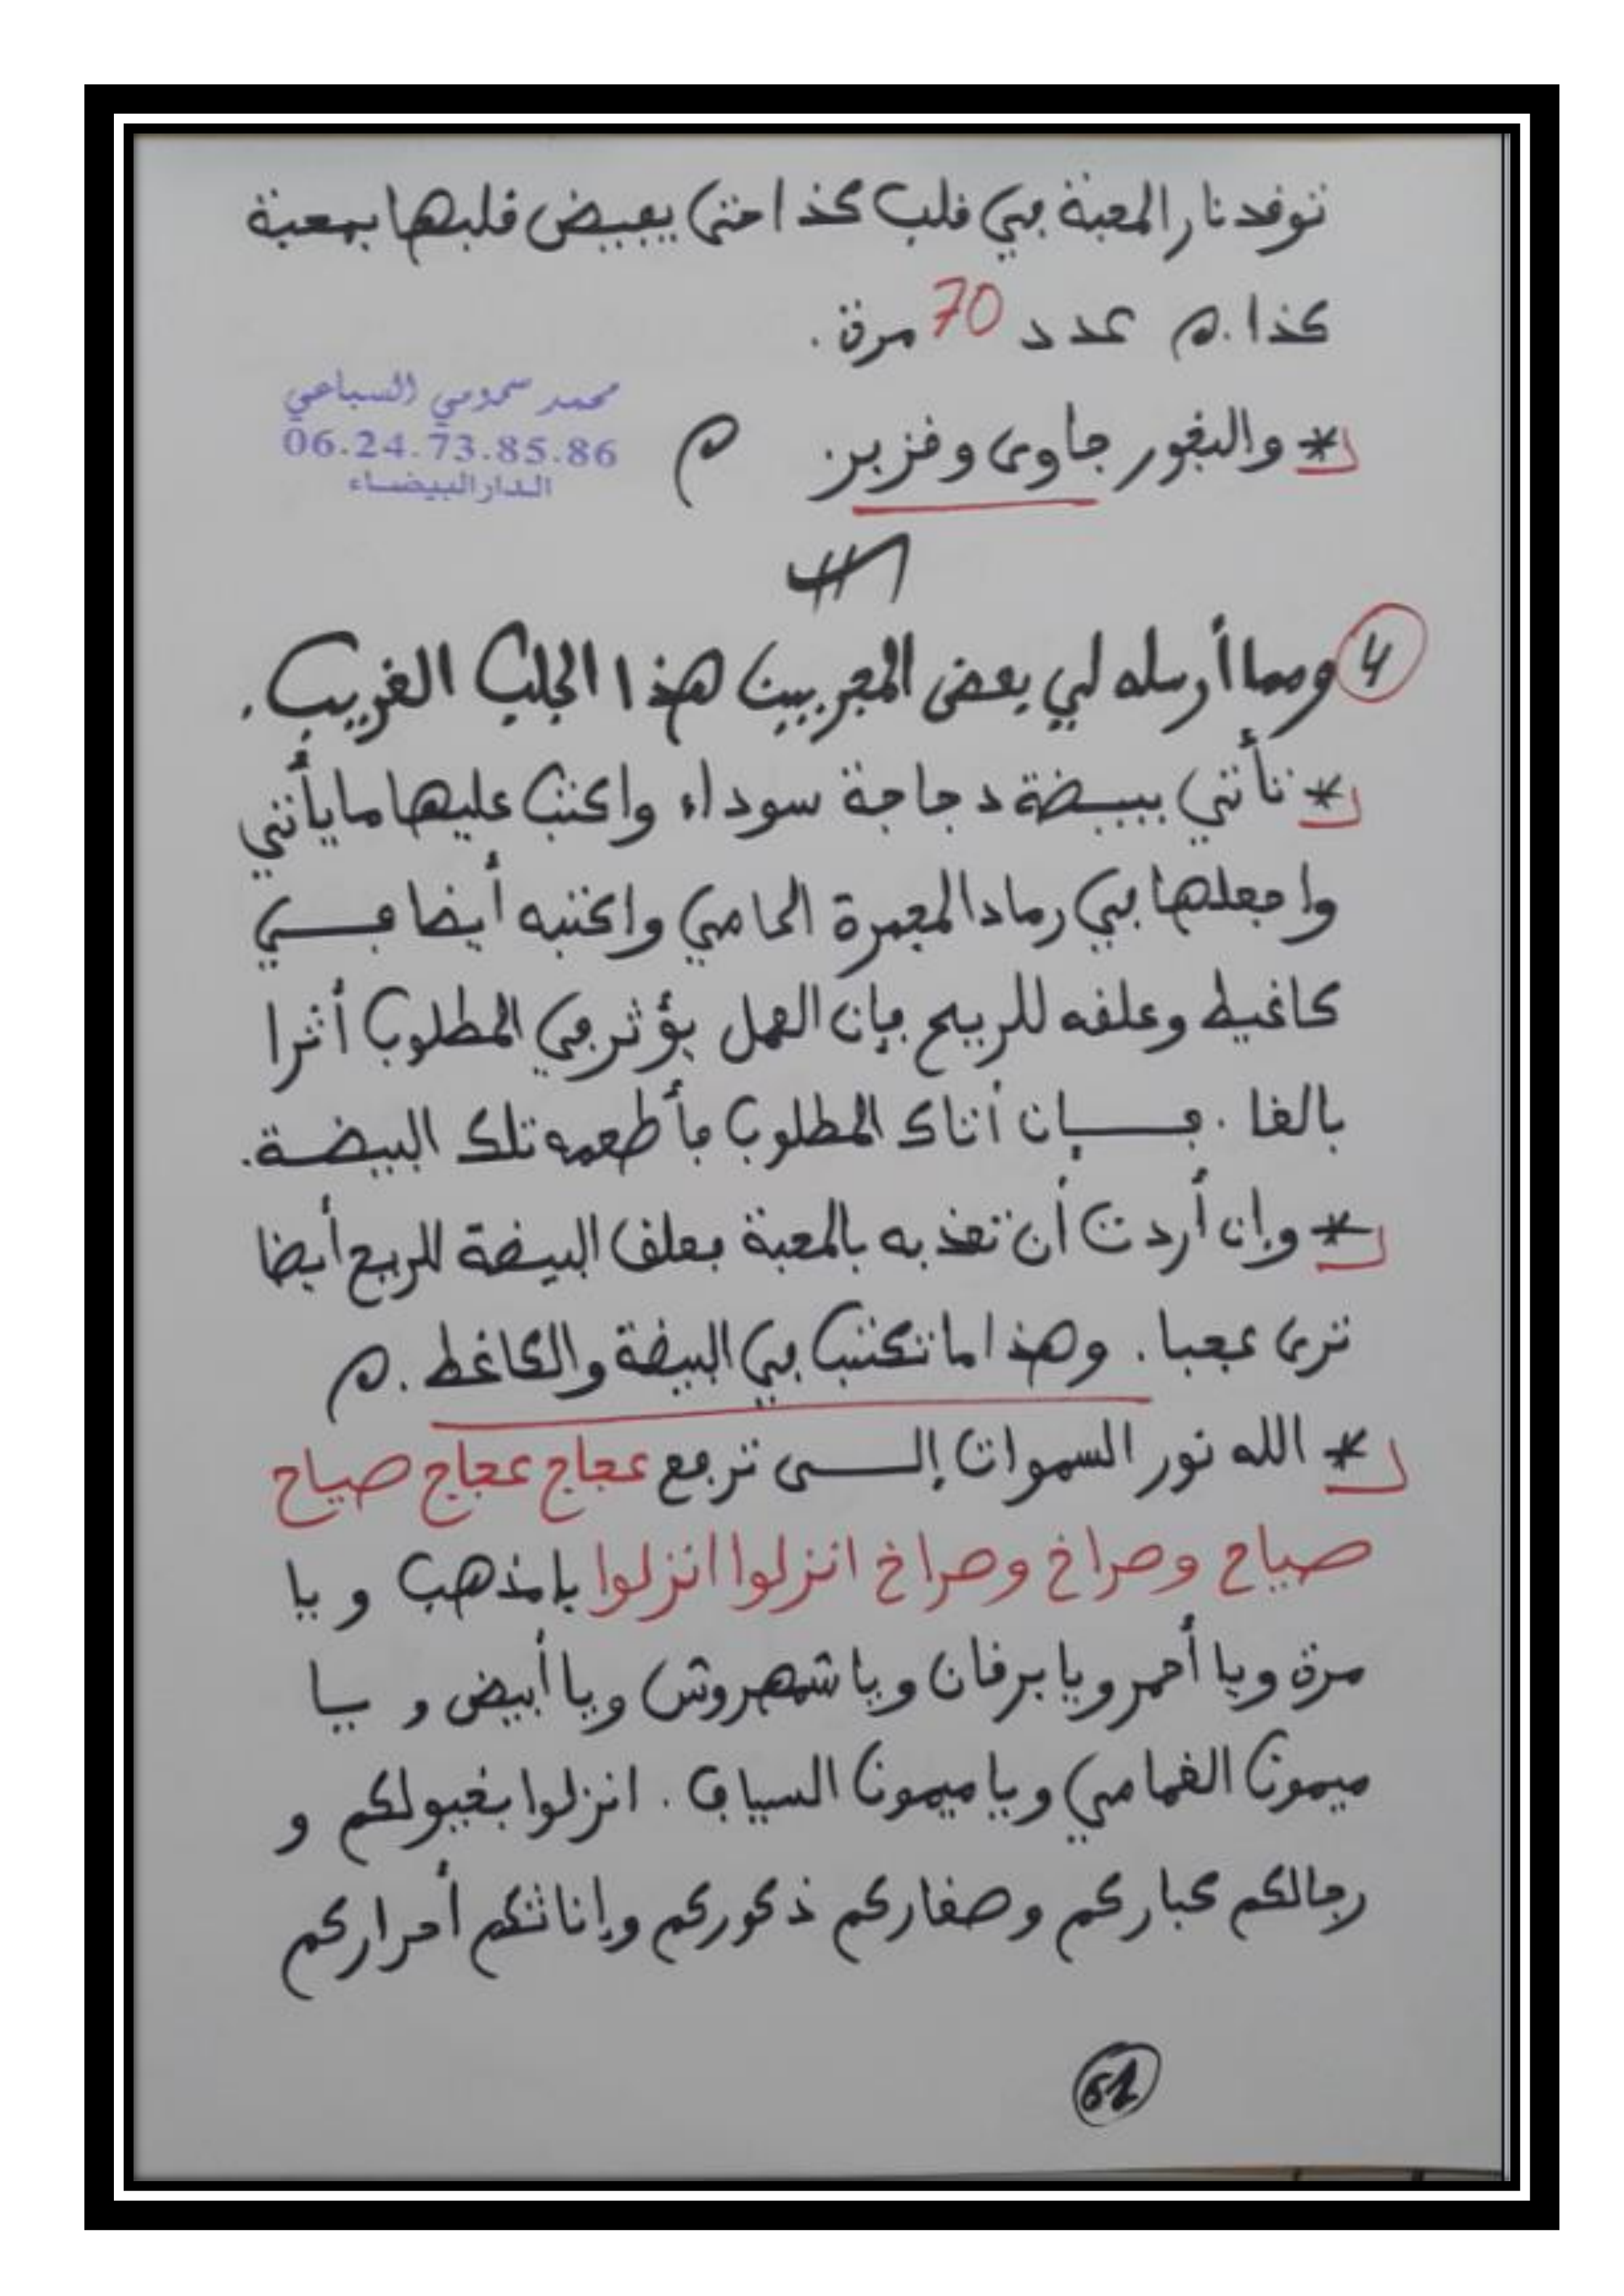 توقد نار المحبة في قلب كذا حتى يفيض قلبها بمحبة
كذا. م عدد 70 مرة.
* والبخور جاوى وفزبر م
محمد سمومي السباعي
06.24.73.85.86
الدار البيضاء
4 ومما أرسله لي بعض المجربين هذا الجلب الغريب.
* تأتي ببيضة دجاجة سوداء واكتب عليها ما يأتي
واجعلها في رماد المجمرة الحامي واكتبه أيضا في
كاغيط وعلقه للريح فإن العمل يؤثر في المطلوب أثرا
بالغا. فإن أتاك المطلوب فأطعمه تلك البيضة.
* وإن أردت أن تعذبه بالمحبة فعلق البيضة للريح أيضا
ترى عجبا. وهذا ما تكتب في البيضة والكاغط. م
* الله نور السموات إلى ترجع عجاج عجاج صياح
صياح وصراخ وصراخ انزلوا انزلوا يا مذهب و يا
مرة ويا أحمر ويا برقان ويا شمهروش ويا أبيض و يا
ميمون الغمامي ويا ميمون السياف. انزلوا بخيولكم و
رجالكم كباركم وصغاركم ذكوركم وإناثكم أحراركم
61